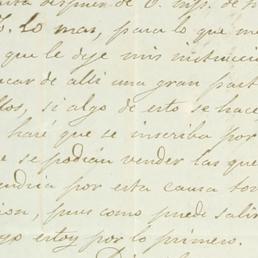 despues de V.
T. Lo mas, para lo que me
que le deje mis instruccio
acar de allí una gran part
llos, si algo de esto se hace
haré que se inscriba por
e se podian vender las que
endria por esta causa tom
ion, pues como puede salir
go estoy por lo primero.